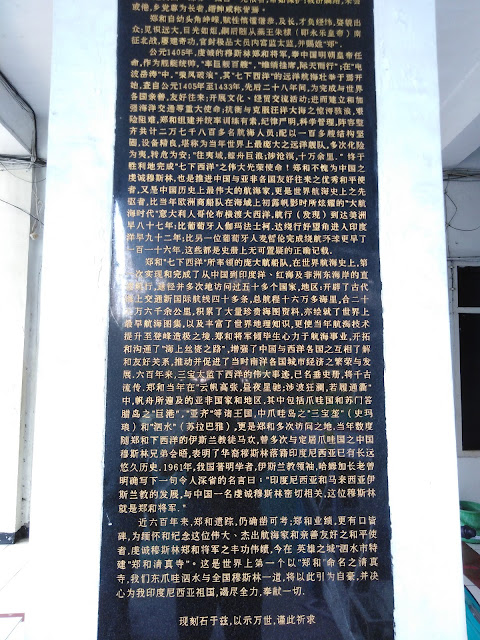 或他,乡党蔚为长者,缙绅咸称贤器。
郑和自幼头角峥嵘,赋性慎谨谨恭,及长,才负经纬,姿貌出
众;见识远大,目光如炬,嗣后随从燕王朱棣(即永乐皇帝)南
征北战,屡建奇功,官封极品大员内宫监太监,并赐姓"郑"。
公元1405年,虔诚的穆斯林郑和将军,奉中国明朝皇帝任
命,作为舰艇统帅,"率巨舰百艘","维绡挂席,际天而行";在"电
波岳涛"中,"乘风破浪",其"七下西洋"的远洋航海壮举于焉开
始,盖自公元1405年至1433年,先后二十八年间,为完成与世界
各国亲善,友好往来;开展文化、经贸交流活动;进而建立和加
强海洋交通等重大使命;抗衡与克服汪洋大海之惊涛骇浪,艰
险阻难,郑和组建率军训练有素,纪律严明,科学管理,阵容整
齐共计二万七千八百多名航海人员;配以一百多艘结构坚
固,设备精良,堪称为当年世界上最庞大之远洋舰队,多次化险
为夷,转危为安;"往夷域,鲸舟巨浪;涉沧溟,十万余里。"终于
胜利地完成"七下西洋"之伟大光荣使命!郑和不愧为中国之
虔诚穆斯林,也是推进中国与亚非各国友好往来之优秀和平使
者,又是中国历史上最伟大的航海家,更是世界航海史上之先
驱者,比当年欧洲商船队在海域上初露帆影时所炫耀的"大航
海时代"意大利人哥伦布横渡大西洋,航行(发现)到达美洲
早八十七年;比葡萄牙人伽玛法士柯,达绕行好望角进入印度
洋早九十二年;比另一位葡萄牙人麦哲伦完成绕航环球更早了
一百一十六年。这些都是史册上无可置疑的正确记载。
郑和"七下西洋"所率领的庞大航船队,在世界航海史上,第
一次实现和完成了从中国到印度洋、红海及非洲东海岸的直
接航行,途径并多次地访问过五十多个国家、地区;开辟了古代
海上交通新国际航线四十多条,总航程十六万多海里,合二十
万六千余公里,积累了大量珍贵海图资料,亦绘就了世界上
最早航海图集,以及丰富了世界地理知识,更使当年航海技术
提升至登峰造极之境,郑和将军倾毕生心力于航海事业,开拓
和沟通了"海上丝瓷之路",增强了中国与西洋各国之互相了解
和友好关系,推动并促进了当时南洋各国城市经济之繁荣与发
展,六百年来,三宝大监下西洋的伟大事迹,已名垂史册,将千古
流传。郑和当年在"云帆高张,昼夜星驰;涉波狂澜,若履通衢"
中,帆舟所遍及的亚非国家和地区,其中包括爪哇国和苏门答
腊岛之"巨港","亚齐"等诸王国,中爪哇岛之"三宝垄"(史玛
琅)和"泗水"(苏拉巴雅),更是郑和多次访问之地,当年数度
随郑和下西洋的伊斯兰教徒马欢,曾多次与定居爪哇国之中国
穆斯林兄弟会晤,表明了华裔穆斯林落籍印度尼西亚已有长远
悠久历史。1961年,我国著明学者,伊斯兰教领袖,哈姆加长老曾
明确写下一句令人深省的名言曰:"印度尼西亚和马来西亚伊
斯兰教的发展,与中国一名虔诚穆斯林密切相关,这位穆斯林
就是郑和将军。"
近六百年来,郑和遗踪,仍确凿可考;郑和业绩,更有口皆
碑,为缅怀和纪念这位伟大、杰出航海家和亲善友好之和平使
者,虔诚穆斯林郑和将军之丰功伟绩,今在 英雄之城"泗水市特
建"郑和清真寺"。这是世界上第一个以"郑和"命名之清真
寺,我们东爪哇泗水与全国穆斯林一道,将以此引为自豪,并决
心为我印度尼西亚祖国,竭尽全力,奉献一切.
现刻石于兹,以示万世,谨此祈求